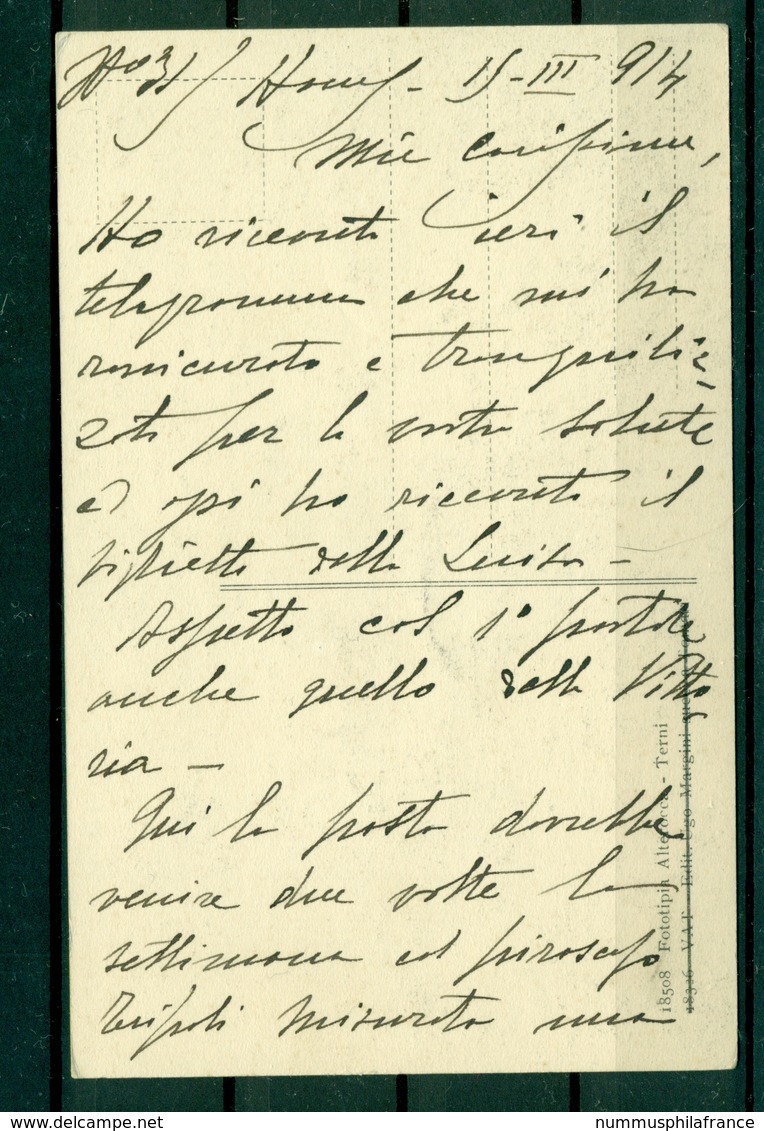 No 3) Homs - 15 - III 914
Mie carissime,
Ho ricevuto ieri il
telegramma che mi ha
rassicurato e tranquiliz=
zato per la vostra salute
ed oggi ho ricevuto il
biglietto della Luisa -
Aspetto col 1° postale
anche quello della Vitto
ria -
Qui la posta dovrebbe
venire due volte la
settimana col piroscafo
Tripoli Misurata una
18508 Fototipia Alterocca - Terni
18326 VAT Edit. Ugo Margini
nummusphilafrance